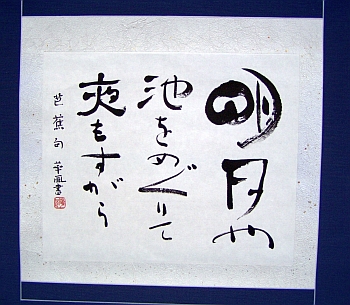 明月や
池をめぐりて
夜もすがら
芭蕉句 華風書